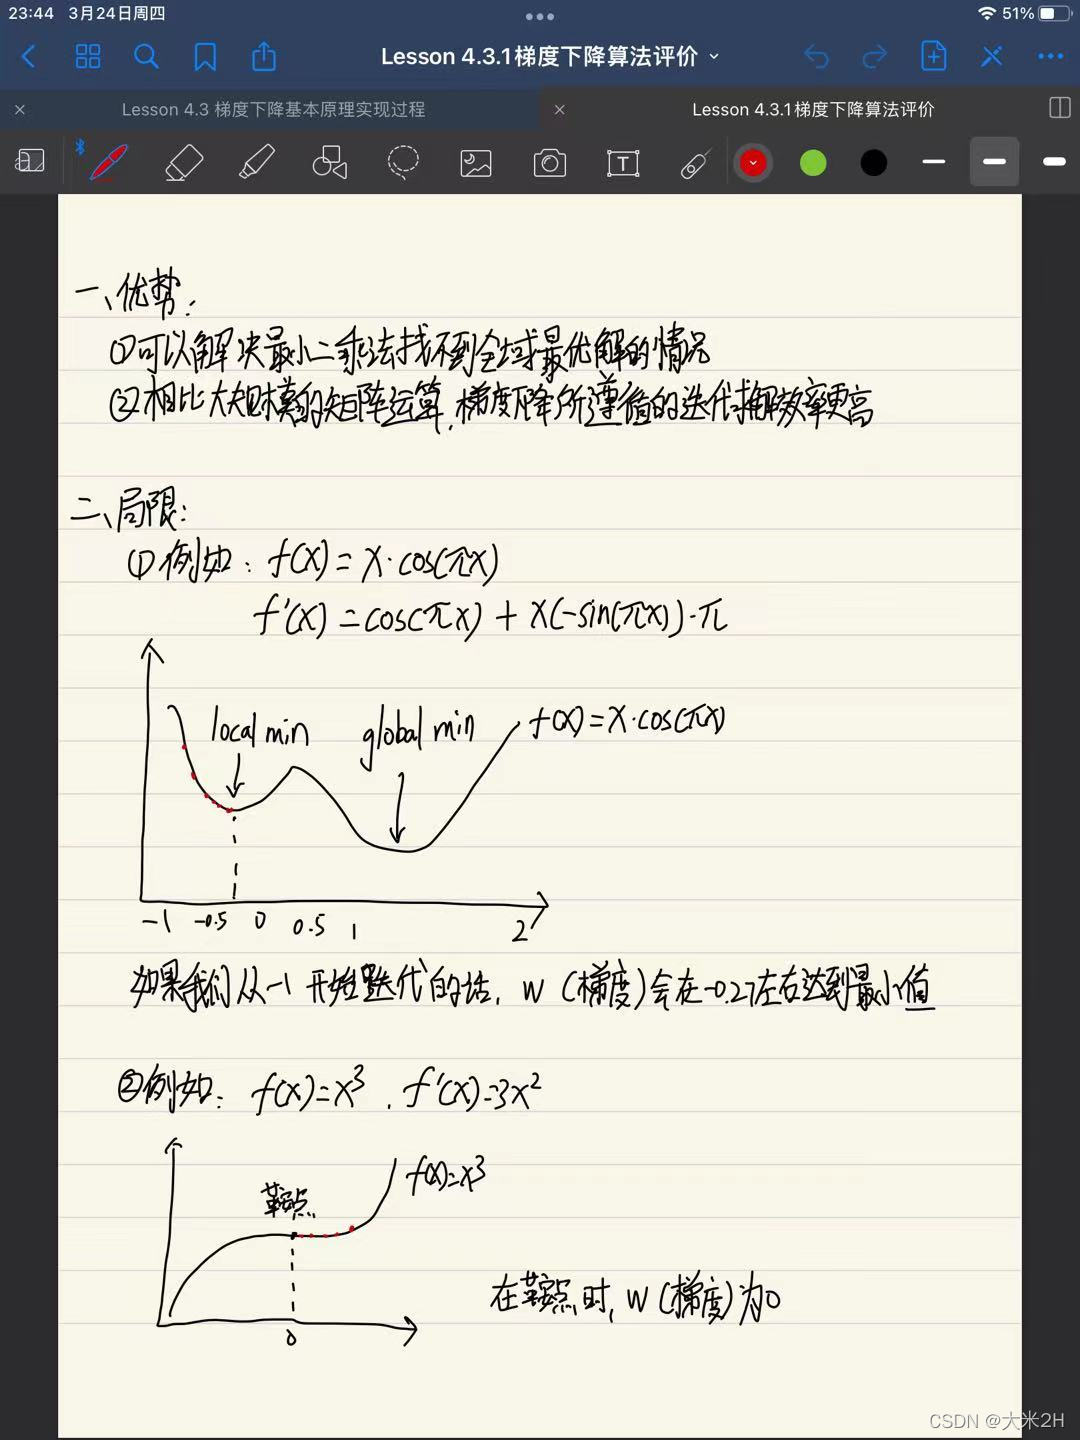 23:44 3月24日周四 51%
Lesson 4.3.1梯度下降算法评价
Lesson 4.3 梯度下降基本原理实现过程
Lesson 4.3.1梯度下降算法评价
一、优势:
①可以解决最小二乘法找不到全域最优解的情况
②相比大规模的矩阵运算,梯度下降所遵循的迭代求解效率更高
二、局限:
①例如: f(x) = x·cos(πx)
f'(x) = cos(πx) + x(-sin(πx))·π
local min
global min
f(x) = x·cos(πx)
-1 -0.5 0 0.5 1 2
如果我们从-1开始迭代的话, w(梯度)会在-0.27左右达到最小值
②例如: f(x)=x³, f'(x)=3x²
f(x)=x³
鞍点
在鞍点时, w(梯度)为0
0
CSDN @大米2H